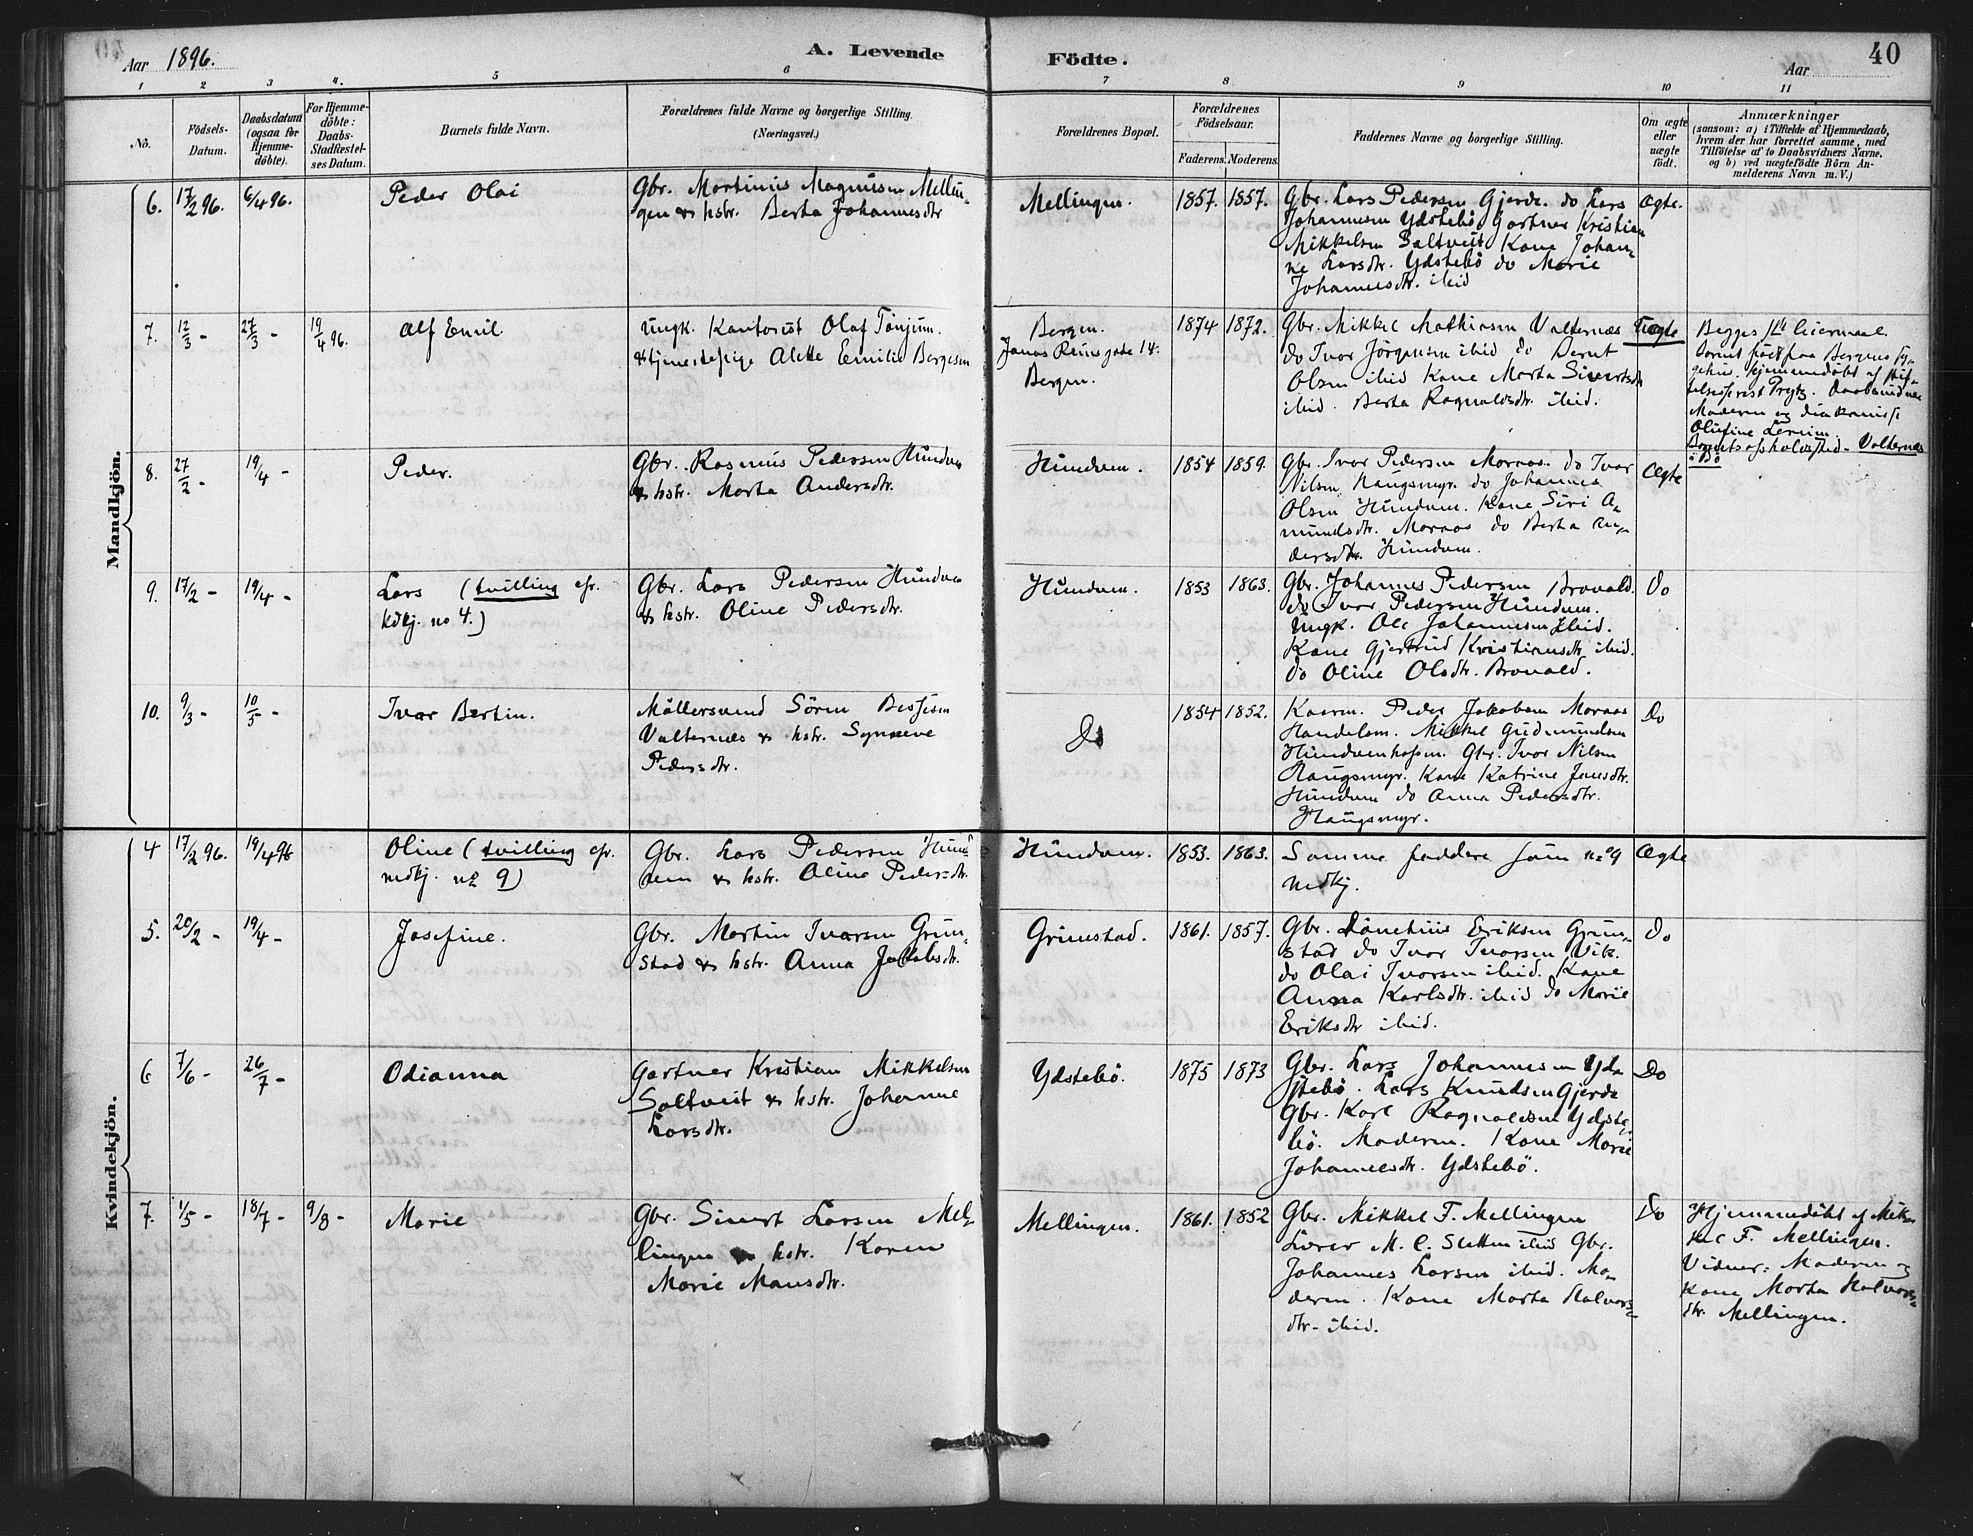 Aar 1896.
A. Levende
Födte.
Aar
40
1 2 3 4. 5 6 7 8 9 10 11
No.
Födsels-
Datum.
Daabsdatum
(ogsaa for
Hjemme-
döbte).
For Hjemme-
döbte:
Daabs-
Stadfæstel-
ses Datum.
Barnets fulde Navn.
Forældrenes fulde Navne og borgerlige Stilling.
(Næringsvei.)
Forældrenes Bopæl.
Forældrenes
Födselsaar.
Faderens. Moderens.
Faddernes Navne og borgerlige Stilling.
Om ægte
eller
uægte
födt.
Anmærkninger
(saasom: a) i Tilfælde af Hjemmedaab,
hvem der har forrettet samme, med
Tilföielse af to Daabsvidners Navne,
og b) ved uægtefödte Börn An-
melderens Navn m. V.)
Mandkjön.
6. 17/2 96. 6/4 96.
Peder Olai
Gbr. Martinus Magnusen Mellin-
gen & hstr. Berta Johannesdtr
Mellingen.
1857. 1857.
Gbr. Lars Pedersen Gjerde. do Lars
Johannesen Ydstebö Gartner Kristian
Mikkelsen Saltveit Kone Johan-
ne Larsdtr. Ydstebö do Marie
Johannesdtr. ibid
Ægte.
7. 12/3 - 27/3 - 19/4 96.
Alf Emil
Ungk. Kontorist Olaf Tönjum.
& tjenestepige Alette Emilie Bergesen
Bergen.
Jonas Reinsgate 14.
Bergen.
1874 1872.
Gbr. Mikkel Mathiasen Valternæs
do Ivar Jörgensen ibid do Bernt
Olsen ibid Kone Marta Sivertsdtr
ibid. Berta Ragnaldsdtr. ibid.
Uægte
Begges 1ste leiermaal.
Barnet födt paa Bergens Sy-
gehus, hjemmedöbt af stif-
telsesprest Prytz. Daabsvidner
Moderen og diakonisse
Olufine Lereim.
Barnets opholdssted - Valternæs
i Bö
8. 27/2 - 19/4 -
Peder.
Gbr. Rasmus Pedersen Hundven
& hstr. Marta Andersdtr.
Hundven.
1854 1859.
Gbr. Ivar Pedersen Moraas. do Ivar
Nilsen Haugsmyr. do Johannes
Olsen Hundven. Kone Siri A-
mundsdtr. Moraas do Berta An-
dersdtr. Hundven.
Ægte
9. 17/2 - 19/4 -
Lars (tvilling cfr.
kdkj. no 4.)
Gbr. Lars Pedersen Hundven
& hstr. Oline Pedersdtr.
Hundven.
1853 1863.
Gbr. Johannes Pedersen Brovold.
do Ivar Pedersen Hundven.
Ungk. Ole Johannesen ibid.
Kone Gjertrud Kristiansdtr ibid.
do Oline Olsdtr. Brovold.
Do
10. 9/3 - 10/5 -
Ivar Bertin.
Möllersvend Sören
Valternæs & hstr. Synneve
Pedersdtr.
Do
1854 1852.
Kaarm. Peder Jakobsen Moraas
Handelsm. Mikkel Gudmundsen
Gbr. Ivar Nilsen
Haugsmyr. Kone Katrine Jensdtr.
Hundven do Anna Pedersdtr.
Haugsmyr.
Do
Kvindekjön.
4 17/2 96. 19/4 96
Oline (tvilling cfr.
mdkj. no 9)
Gbr. Lars Pedersen Hund-
ven & hstr. Oline Pedersdtr.
Hundven.
1853. 1863.
Samme faddere som no 9
mdkj.
Ægte
5. 20/2 - 19/4 -
Josefine.
Gbr. Martin Ivarsen Grim-
stad & hstr. Anna Jakobsdtr.
Grimstad.
1861. 1857.
Gbr. Eriksen Grim-
stad do Ivar Ivarsen Vik.
do Olai Ivarsen ibid. Kone
Anna Karlsdtr. ibid do Marie
Eriksdtr ibid.
Do
6 7/6 - 26/7 -
Odianna
Gartner Kristian Mikkelsen
Saltveit & hstr. Johanne
Larsdtr.
Ydstebö.
1875 1873
Gbr. Lars Johannesen Yd-
stebö. Lars Knudsen Gjerde
Gbr. Karl Ragnaldsen Ydste-
bö. Moderen. Kone Marie
Johannesdtr. Ydstebö.
Do
7. 1/5 - 18/7 - 9/8 -
Marie
Gbr. Sivert Larsen Mel-
lingen & hstr. Karen
Marie Monsdtr.
Mellingen.
1861. 1852
Gbr. Mikkel F. Mellingen
Lærer M. C. Sletten ibid Gbr.
Johannes Larsen ibid. Mo-
deren. Kone Marta Halvors-
dtr. ibid.
Do
Hjemmedöbt af Mik-
kel F. Mellingen.
Vidner: Moderen og
Kone Marta Halvors-
dtr. Mellingen.